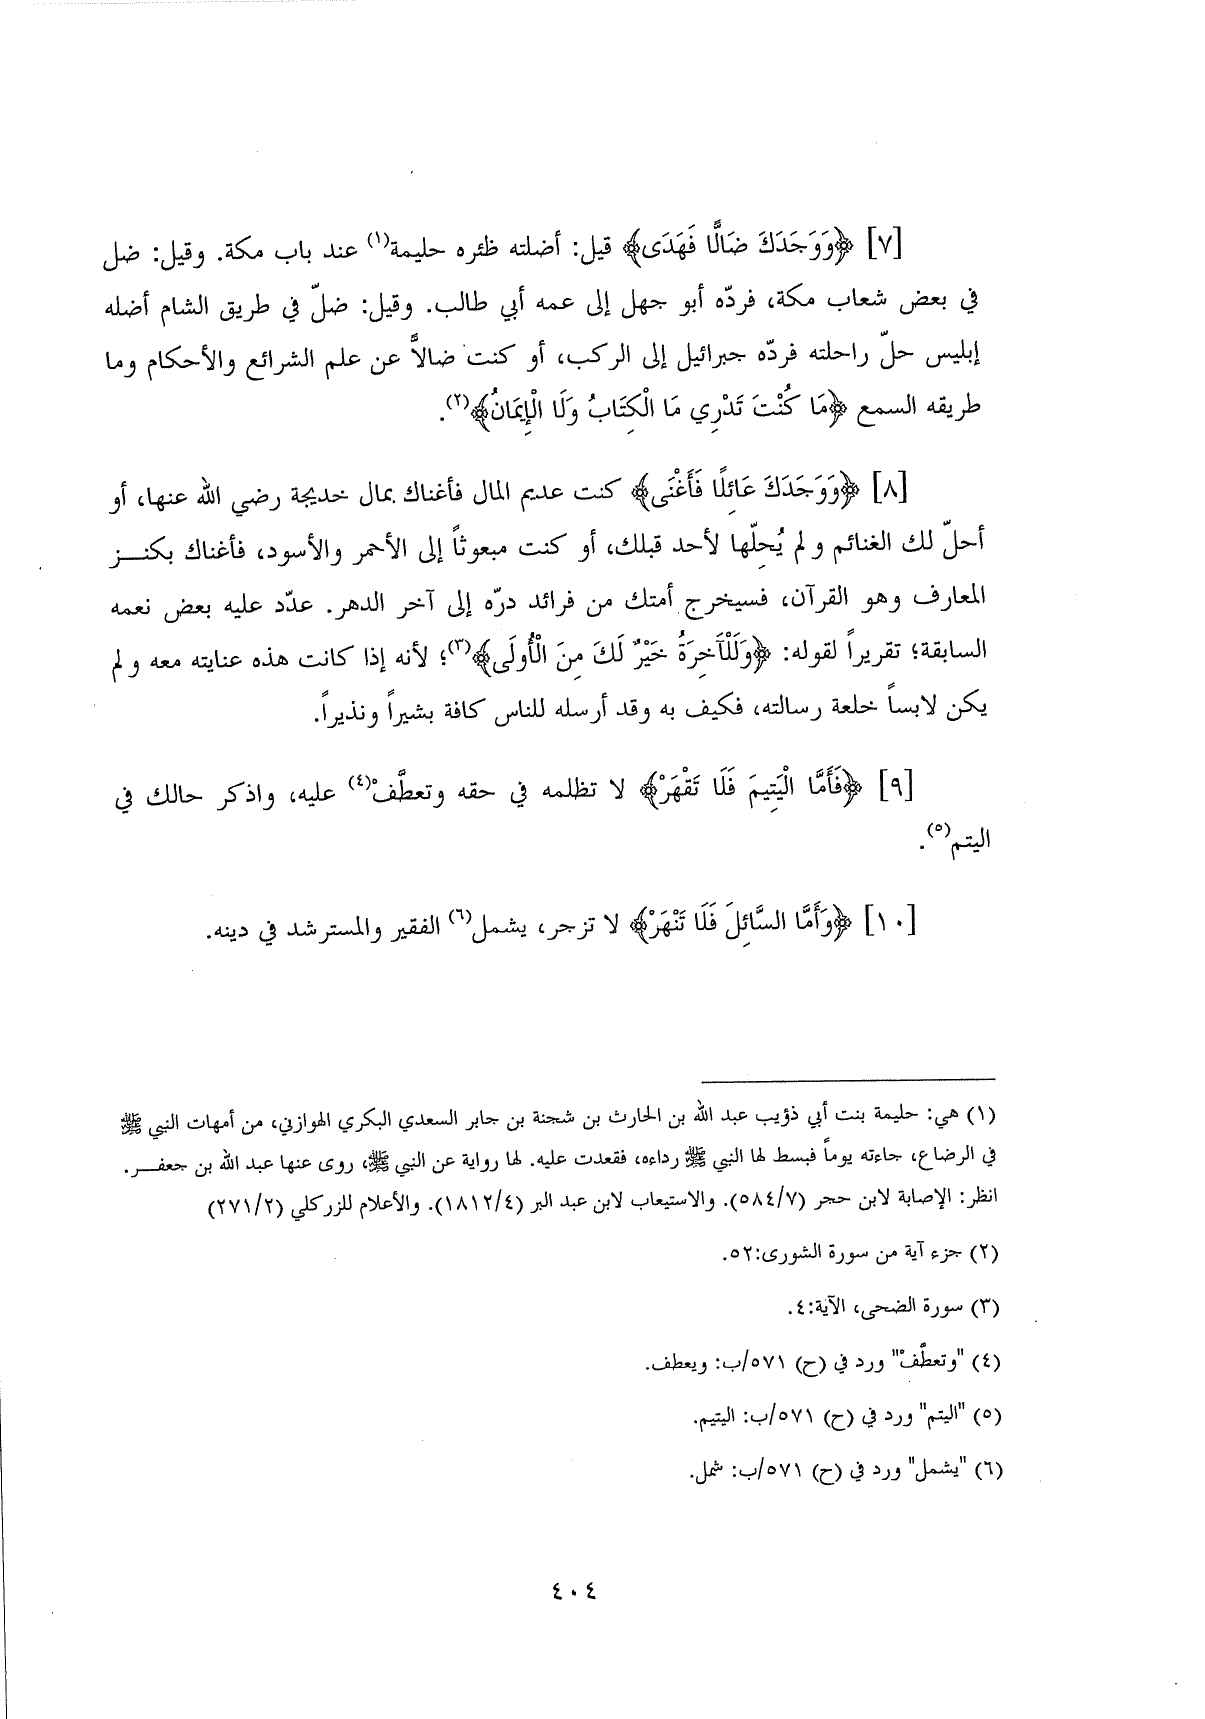 [٧] ﴿وَوَجَدَكَ ضَالًّا فَهَدَى﴾ قيل: أضلته ظئره حليمة(١) عند باب مكة. وقيل: ضل
في بعض شعاب مكة، فردّه أبو جهل إلى عمه أبي طالب. وقيل: ضلّ في طريق الشام أضله
إبليس حلّ راحلته فردّه جبرائيل إلى الركب، أو كنت ضالاًّ عن علم الشرائع والأحكام وما
طريقه السمع ﴿مَا كُنْتَ تَدْرِي مَا الْكِتَابُ وَلَا الْإِيمَانُ﴾(٢).
[٨] ﴿وَوَجَدَكَ عَائِلًا فَأَغْنَى﴾ كنت عديم المال فأغناك بمال خديجة رضي الله عنها، أو
أحلّ لك الغنائم و لم يُحلّها لأحد قبلك، أو كنت مبعوثاً إلى الأحمر والأسود، فأغناك بكنــز
المعارف وهو القرآن، فسيخرج أمتك من فرائد درّه إلى آخر الدهر. عدّد عليه بعض نعمه
السابقة؛ تقريراً لقوله: ﴿وَلَلْآخِرَةُ خَيْرٌ لَكَ مِنَ الْأُولَى﴾(٣)؛ لأنه إذا كانت هذه عنايته معه و لم
يكن لابساً خلعة رسالته، فكيف به وقد أرسله للناس كافة بشيراً ونذيراً.
[٩] ﴿فَأَمَّا الْيَتِيمَ فَلَا تَقْهَرْ﴾ لا تظلمه في حقه وتعطَّفْ(٤) عليه، واذكر حالك في
اليتم(٥).
[١٠] ﴿وَأَمَّا السَّائِلَ فَلَا تَنْهَرْ﴾ لا تزجر، يشمل(٦) الفقير والمسترشد في دينه.
(١) هي: حليمة بنت أبي ذؤيب عبد الله بن الحارث بن شجنة بن جابر السعدي البكري الهوازني، من أمهات النبي ﷺ
في الرضاع، جاءته يوماً فبسط لها النبي ﷺ رداءه، فقعدت عليه. لها رواية عن النبي ﷺ، روى عنها عبد الله بن جعفــر.
انظر: الإصابة لابن حجر (٥٨٤/٧). والاستيعاب لابن عبد البر (١٨١٢/٤). والأعلام للزركلي (٢٧١/٢)
(٢) جزء آية من سورة الشورى:٥٢.
(٣) سورة الضحى، الآية:٤.
(٤) "وتعطَّفْ" ورد في (ح) ٥٧١/ب: ويعطف.
(٥) "اليتم" ورد في (ح) ٥٧١/ب: اليتيم.
(٦) "يشمل" ورد في (ح) ٥٧١/ب: شمل.
٤٠٤